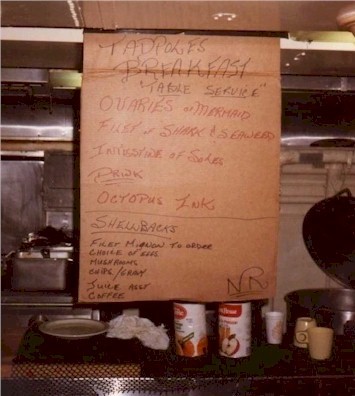 TADPOLES
BREAKFAST
"TABLE SERVICE"
OVARIES OF MERMAID
FILET OF SHARK & SEAWEED
INTESTINE OF SOLES
DRINK
OCTOPUS INK
SHELLBACKS
FILET MIGNON TO ORDER
CHOICE OF EGGS
MUSHROOMS
CHIPS/GRAVY
JUICE ASST
COFFEE
NR